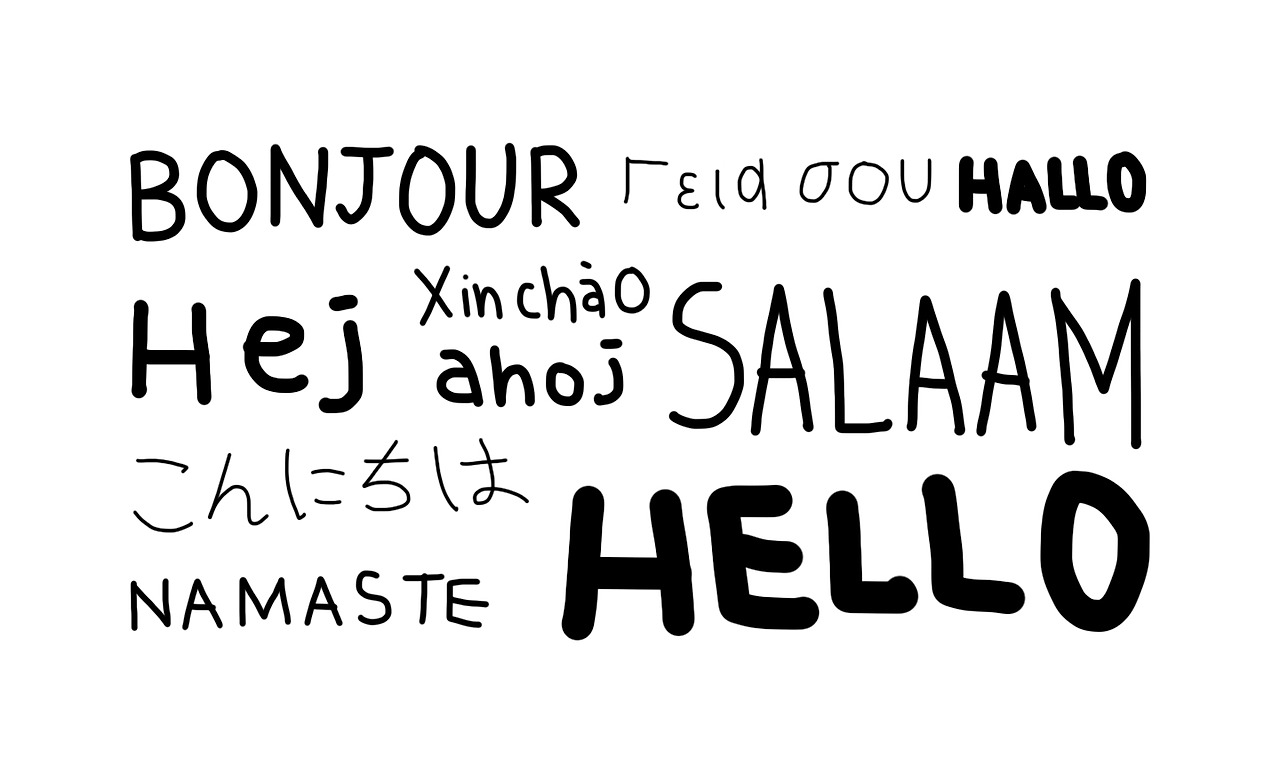 BONJOUR Γεια σου HALLO
Hej Xin chào SALAAM
ahoj
こんにちは HELLO
NAMASTE